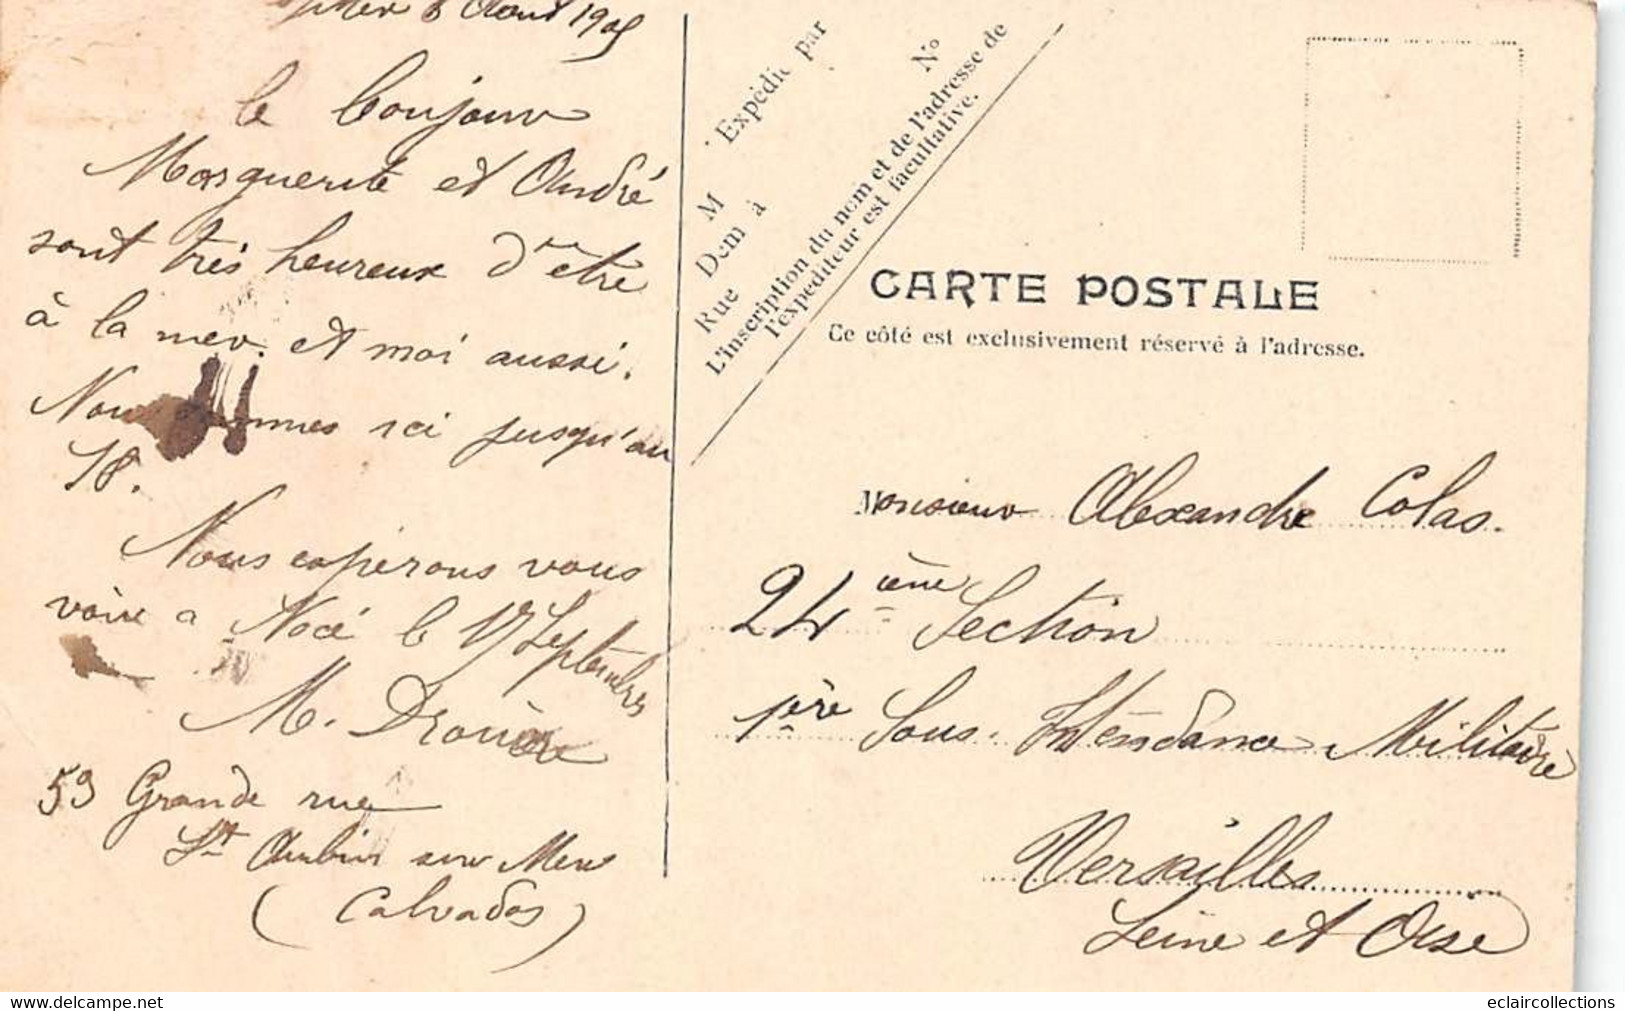 s/Mer 6 Août 1905
le bonjour
Marguerite et André
sont très heureux d'être
à la mer. et moi aussi.
Nous sommes ici jusqu'au
18.
Nous espérons vous
voire a Nocé le 17 Septembre
M. Drouère
59 Grande rue
St Aubin sur Mer
(Calvados)
Expédié par
M
Dem à
Rue
N°
L'inscription du nom et de l'adresse de
l'expéditeur est facultative.
CARTE POSTALE
Ce côté est exclusivement réservé à l'adresse.
Monsieur Alexandre Colas.
24ième Section
1ère Sous-Intendance Militaire
Versailles
Seine et Oise
eclaircollections